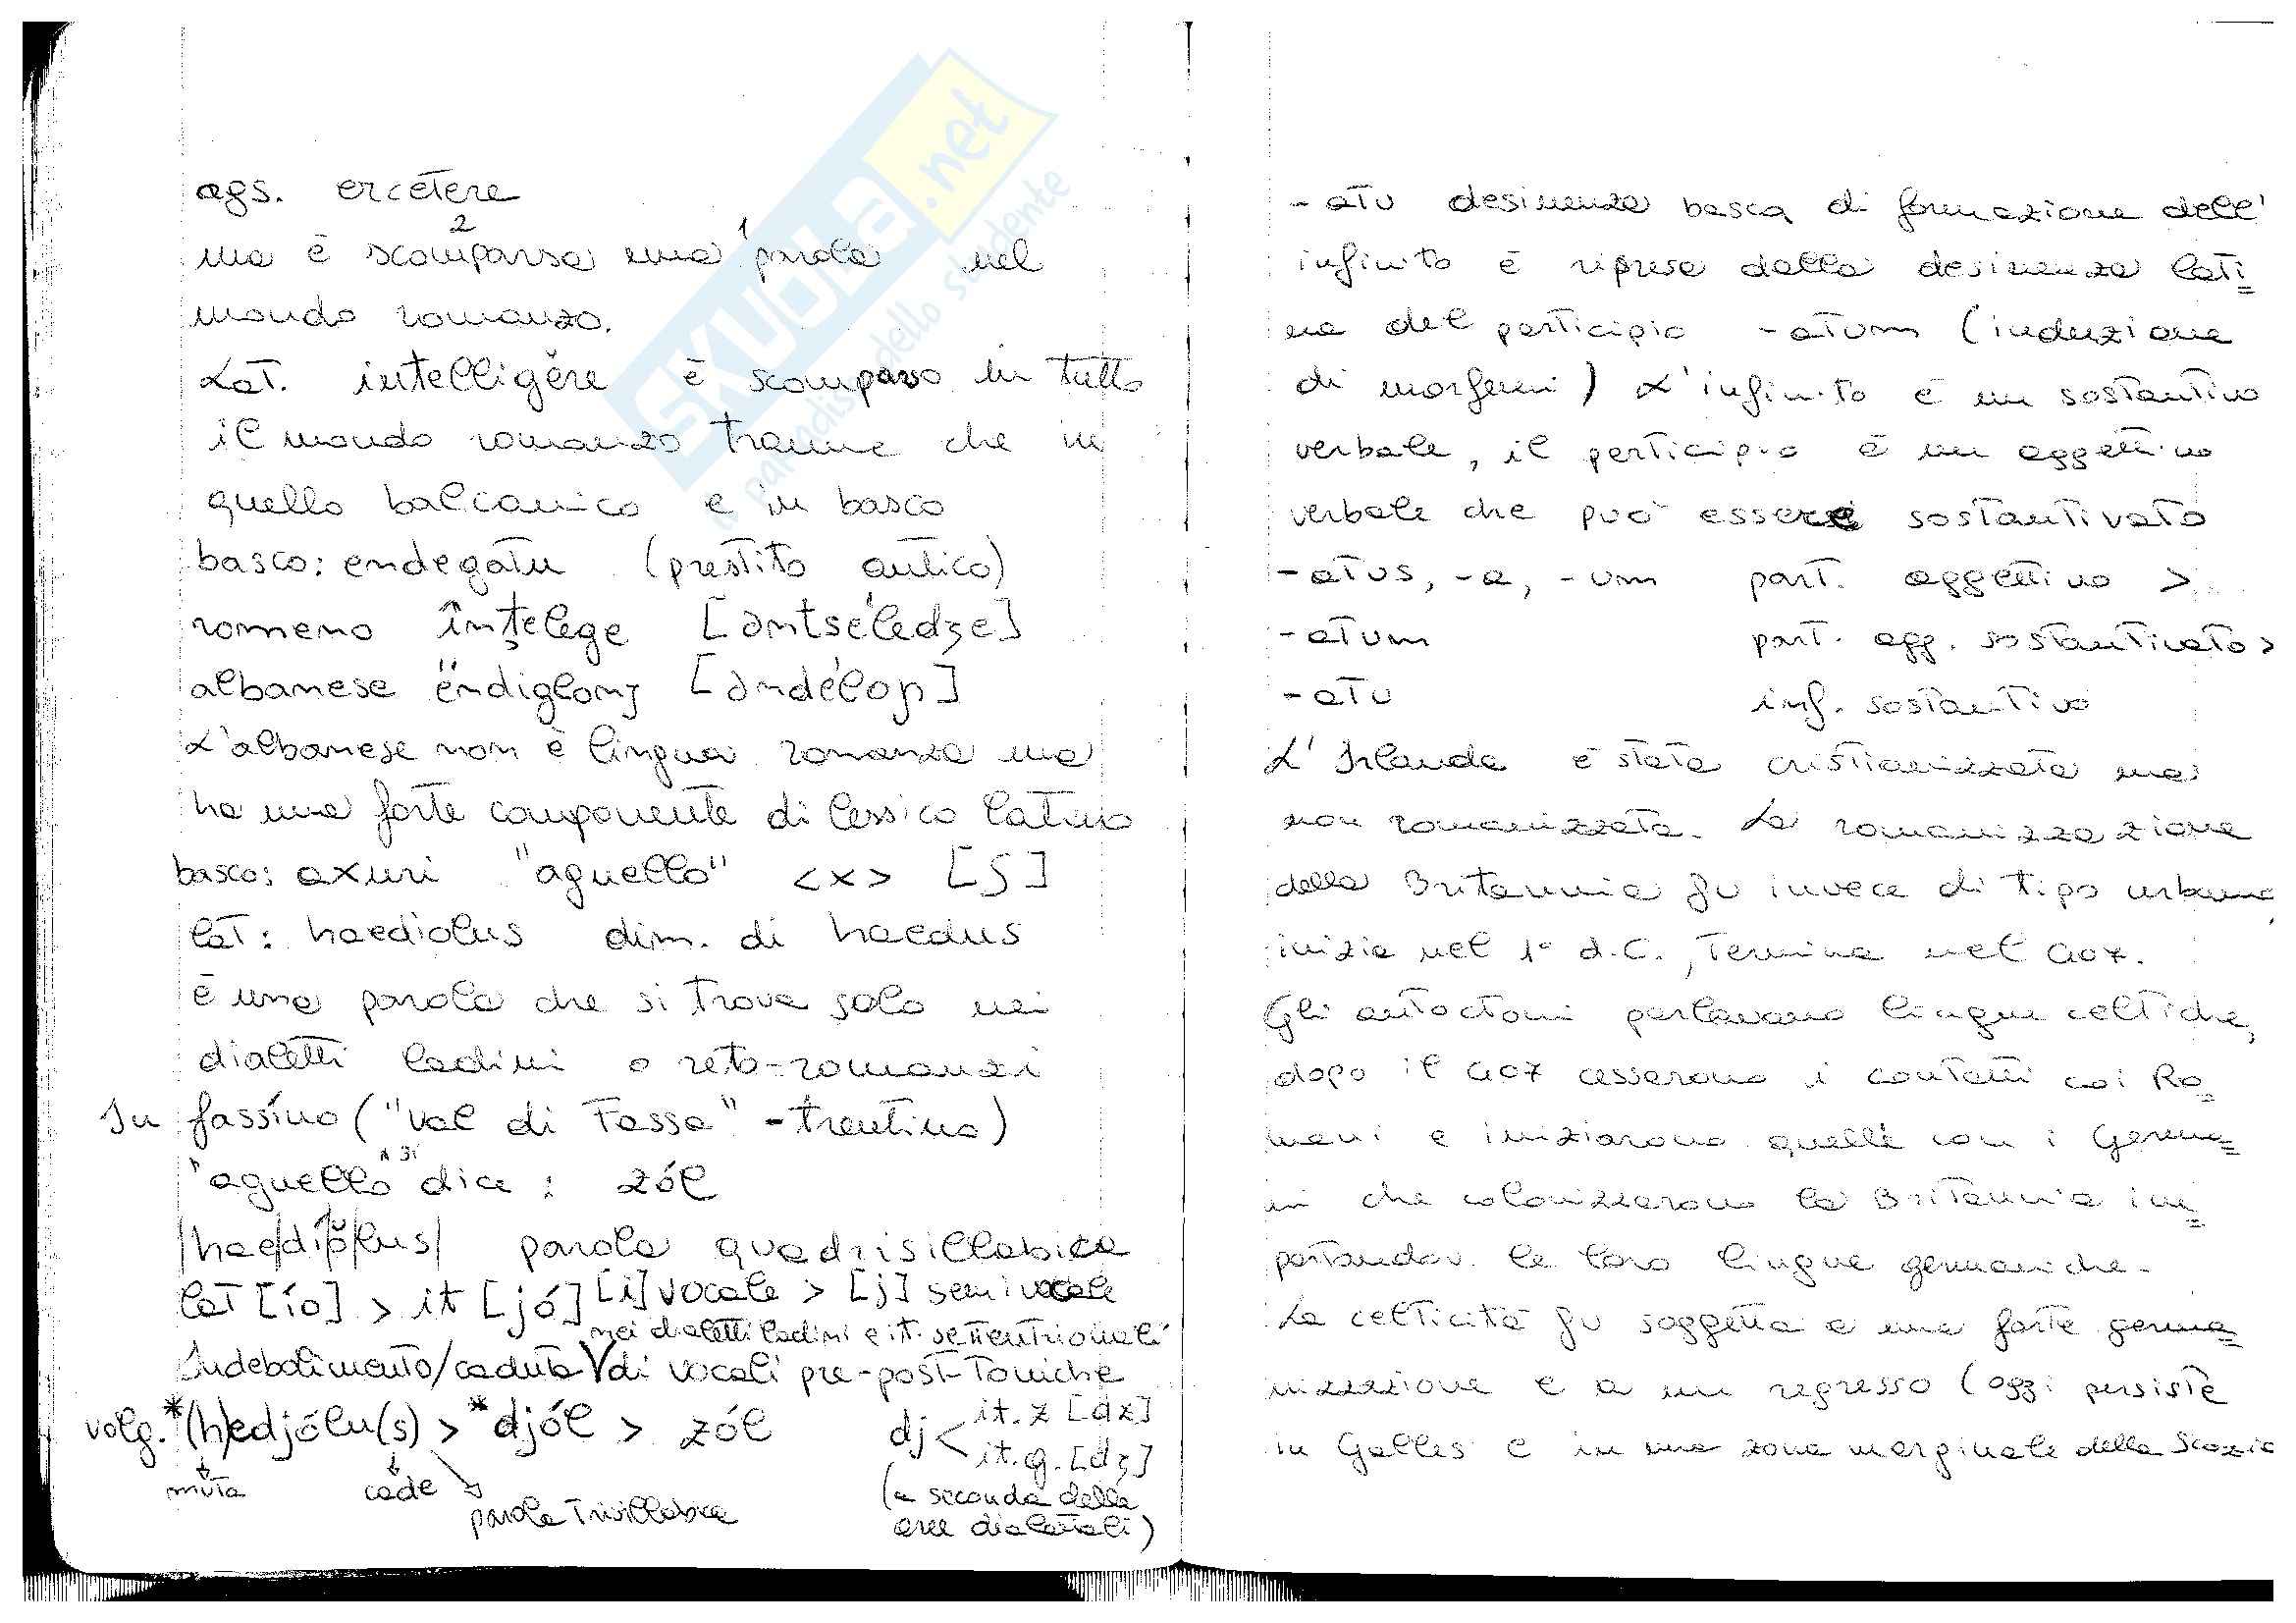 ags. ercetere
ma è scomparsa ² una ¹ parola nel
mondo romanzo.
Lat. intelligĕre è scomparso in tutto
il mondo romanzo tranne che in
quello balcanico e in basco
basco: endegatu (prestito antico)
romeno înțelege [əntséledʒe]
albanese ëndiglonj [əndéloɲ]
L'albanese non è lingua romanza ma
ha una forte componente di lessico latino
basco: axuri "agnello" <x> [ʃ]
lat: haediolus dim. di haedus
è una parola che si trova solo nei
dialetti ladini o reto-romanzi
In fassino ("Val di Fassa" - trentino)
"agnello" si dice: zól
|hae|dí|ŏ|lus| parola quadrisillabica
lat [ío] > it [jó] [i] vocale > [j] semivocale
nei dialetti ladini e it. settentrionali
Indebolimento/caduta V di vocali pre-post-toniche
volg. *(h)edjólu(s) > *djól > zól
muta cade parola trisillabica
dj < it. z [dz]
it. g. [dʒ]
(a seconda delle
aree dialettali)
-atu desinenza basca di formazione dell'
infinito è ripresa dalla desinenza lati=
na del participio -atum (induzione
di morfemi) L'infinito è un sostantivo
verbale, il participio è un aggettivo
verbale che può essere sostantivato
-atus, -a, -um part. aggettivo >
-atum part. agg. sostantivato >
-atu inf. sostantivo
L'Irlanda è stata cristianizzata ma
non romanizzata. La romanizzazione
della Britannia fu invece di tipo urbano,
inizia nel 1° d.C., termina nel 407.
Gli autoctoni parlavano lingue celtiche,
dopo il 407 cessarono i contatti coi Ro=
mani e iniziarono quelli con i Germa=
ni che colonizzarono la Britannia im=
portandov. le loro lingue germaniche.
La celticità fu soggetta a una forte germa=
nizzazione e a un regresso (oggi persiste
in Galles e in una zona marginale della Scozia
SKUOLA.net
il paradiso dello studente